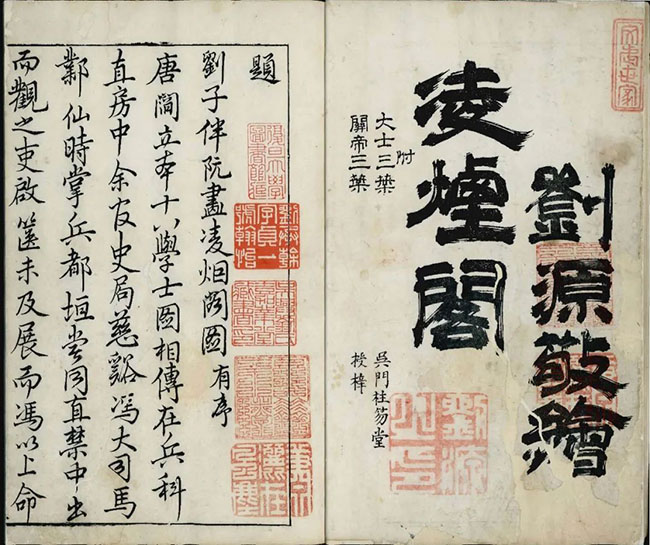 劉源敬繪
凌煙閣
附
大士三葉
關帝三葉
吳門柱笏堂
授梓
劉源
題
劉子伴阮畫凌烟閣圖有序
唐閻立本十八學士圖相傳在兵科
直房中余官史局慈谿馮大司馬
鄴仙時掌兵都垣嘗同直禁中出
而觀之吏啟篋未及展而馮以上命
劉承幹
字貞一
號翰怡